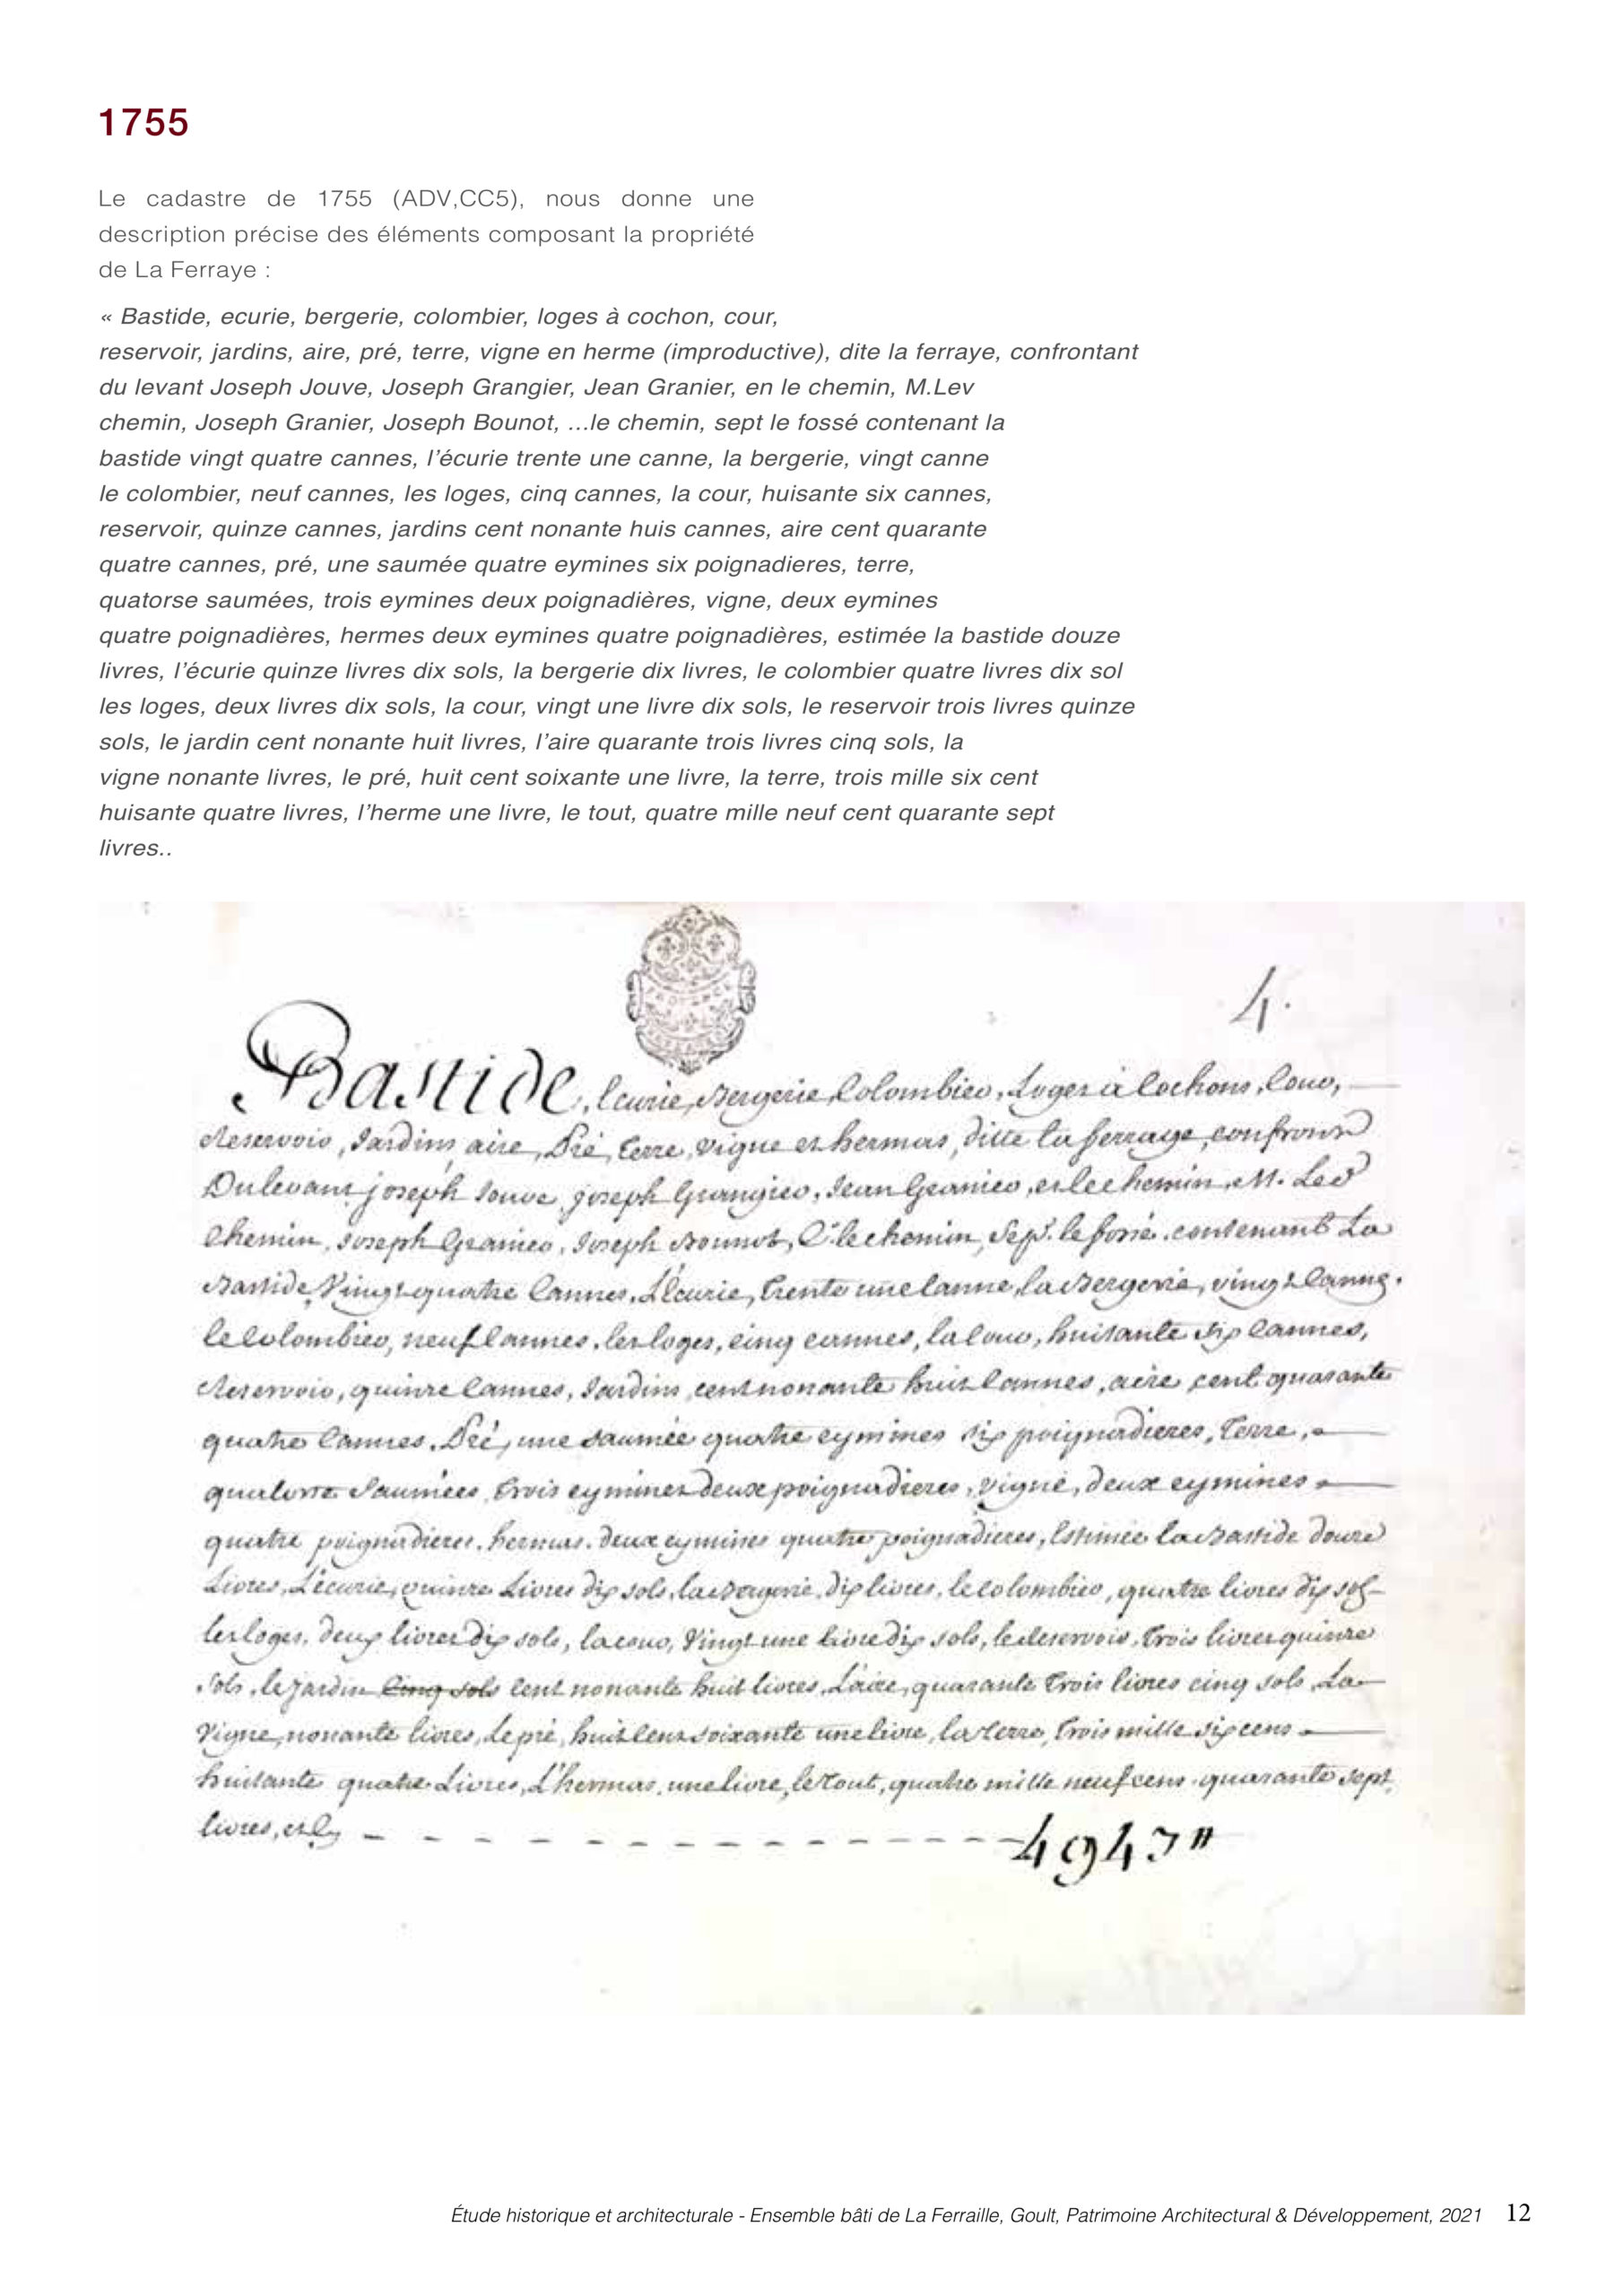 1755
Le cadastre de 1755 (ADV,CC5), nous donne une
description précise des éléments composant la propriété
de La Ferraye :
« Bastide, ecurie, bergerie, colombier, loges à cochon, cour,
reservoir, jardins, aire, pré, terre, vigne en herme (improductive), dite la ferraye, confrontant
du levant Joseph Jouve, Joseph Grangier, Jean Granier, en le chemin, M.Lev
chemin, Joseph Granier, Joseph Bounot, ...le chemin, sept le fossé contenant la
bastide vingt quatre cannes, l'écurie trente une canne, la bergerie, vingt canne
le colombier, neuf cannes, les loges, cinq cannes, la cour, huisante six cannes,
reservoir, quinze cannes, jardins cent nonante huis cannes, aire cent quarante
quatre cannes, pré, une saumée quatre eymines six poignadieres, terre,
quatorse saumées, trois eymines deux poignadières, vigne, deux eymines
quatre poignadières, hermes deux eymines quatre poignadières, estimée la bastide douze
livres, l'écurie quinze livres dix sols, la bergerie dix livres, le colombier quatre livres dix sol
les loges, deux livres dix sols, la cour, vingt une livre dix sols, le reservoir trois livres quinze
sols, le jardin cent nonante huit livres, l'aire quarante trois livres cinq sols, la
vigne nonante livres, le pré, huit cent soixante une livre, la terre, trois mille six cent
huisante quatre livres, l'herme une livre, le tout, quatre mille neuf cent quarante sept
livres..
4.
Bastide, Ecurie, Bergerie, Colombier, Loges à Cochons, Cour,
Reservoir, Jardins, aire, Pré, Terre, vigne et hermas, ditte la ferraye, confront
Du levant joseph Jouve, joseph Grangier, Jean Granier, et le chemin, M. Lev
Chemin, Joseph Granier, Joseph Bounot, le chemin, Sept. le fossé, contenant La
Bastide Vingt quatre Cannes, L'Ecurie, Trente une Canne, la Bergerie, vingt Canne.
le Colombier, neuf Cannes, les loges, cinq cannes, la Cour, huitante six Cannes,
Reservoir, quinze Cannes, Jardins, cent nonante huit Cannes, aire cent quarante
quatre Cannes, Pré, une saumée quatre eymines six poignadieres, Terre,
quatorze Saumées, trois eymines deux poignadieres, vigne, deux eymines
quatre poignadieres, hermas, deux eymines quatre poignadieres, Estimée la Bastide douze
Livres, L'écurie, quinze Livres dix sols, la Bergerie, dix livres, le colombier, quatre livres dix sol
les loges, deux livres dix sols, la cour, Vingt une livre dix sols, le Reservoir, Trois livres quinze
sols, le jardin cinq sols cent nonante huit livres, L'aire, quarante Trois livres cinq sols, La
Vigne, nonante livres, Le pré, huit cent soixante une livre, la Terre, Trois mille six cens
huitante quatre Livres, L'hermas, une livre, le Tout, quatre mille neuf cens quarante sept
livres, 4947"
Étude historique et architecturale - Ensemble bâti de La Ferraille, Goult, Patrimoine Architectural & Développement, 2021 12